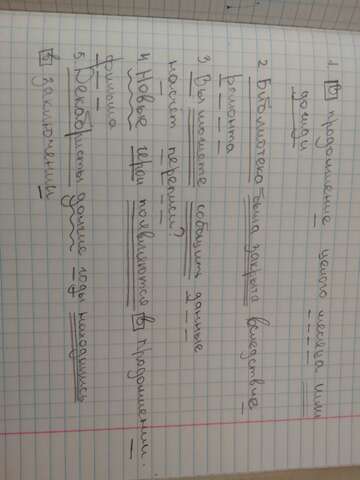 1. В продолжение целого месяца шли
дожди
2 Библиотека была закрыта вследствие
ремонта
3 Вы можете сообщить данные
насчёт переписи?
4 Новые герои появляются в продолжении
фильма
5 Декабристы долгие годы находились
в заключении